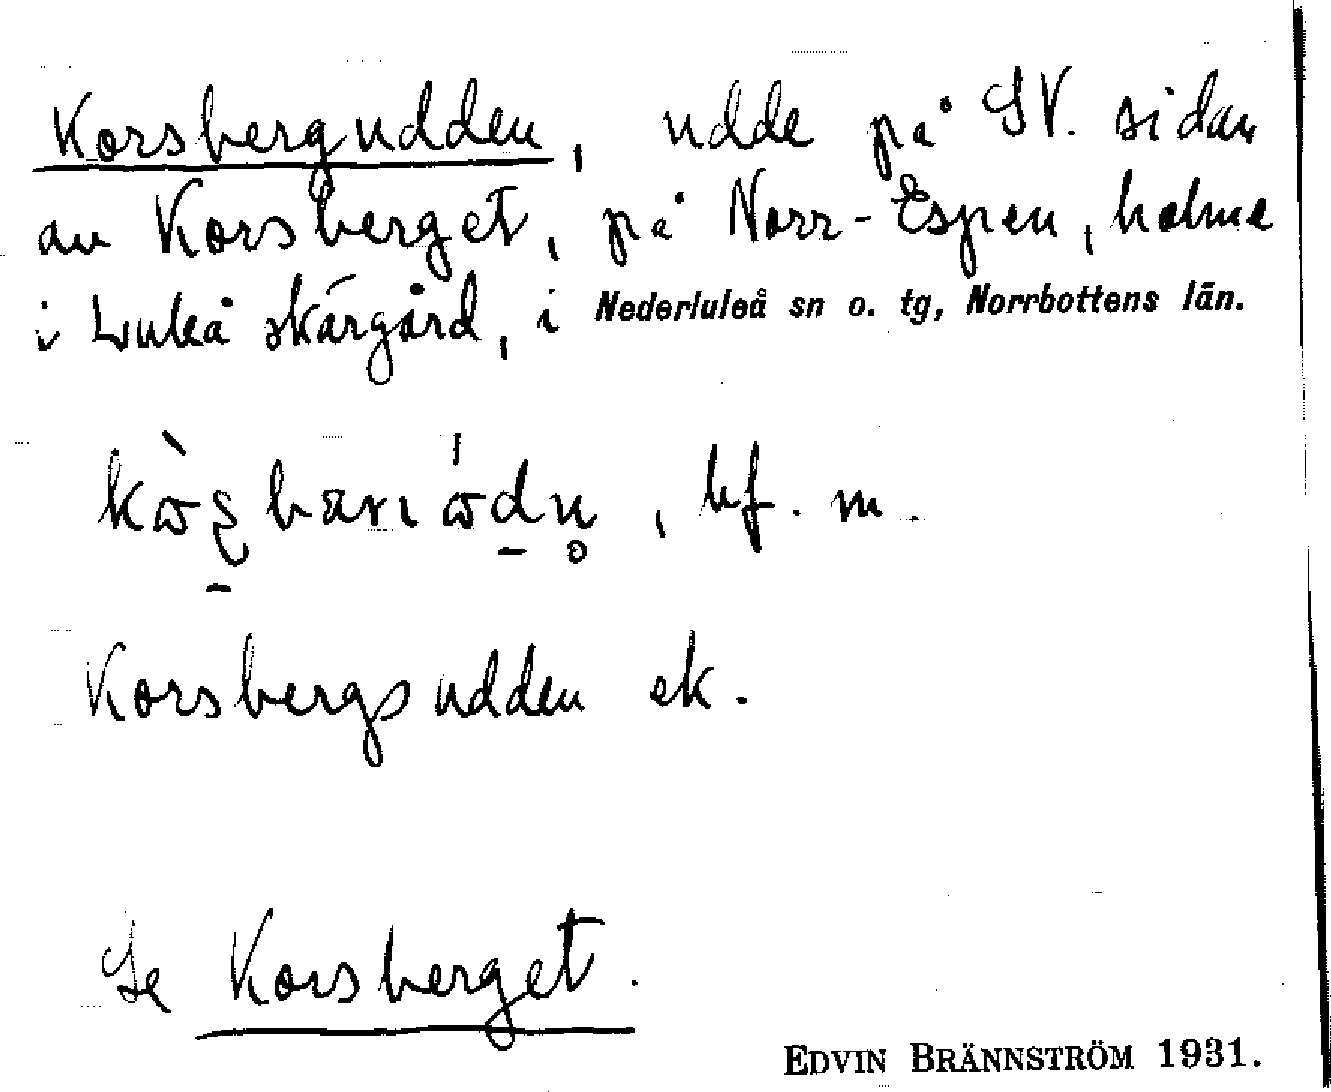 Korsbergudden, udde på SV. sidan
av Korsberget, på Norr-Espen, holme
i Luleå skärgård, i Nederluleå sn o. tg, Norrbottens län.
, bf. m.
Korsbergsudden ek.
Se Korsberget.
EDVIN BRÄNNSTRÖM 1931.